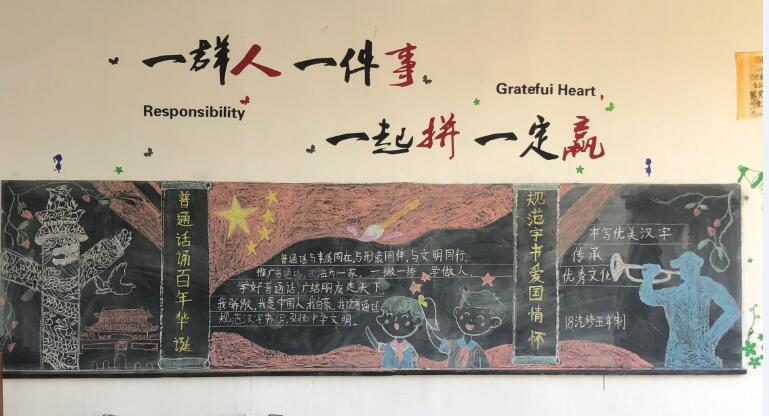 一群人 一件事
Gratefui Heart
Responsibility
一起拼 一定赢
普通话诵百年华诞
普通话与素质同在,与形象同伴,与文明同行
推广普通话,四海为一家, 一撇一捺 学做人
学好普通话,广结朋友走天下
我骄傲,我是中国人,我自豪,我说普通话
规范汉字书写,弘扬中华文明.
规范字书爱国情怀
书写优美汉字
传承
优秀文化
18汽修五年制